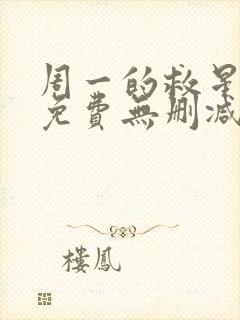 周一的救星
免費無删减
樓鳳